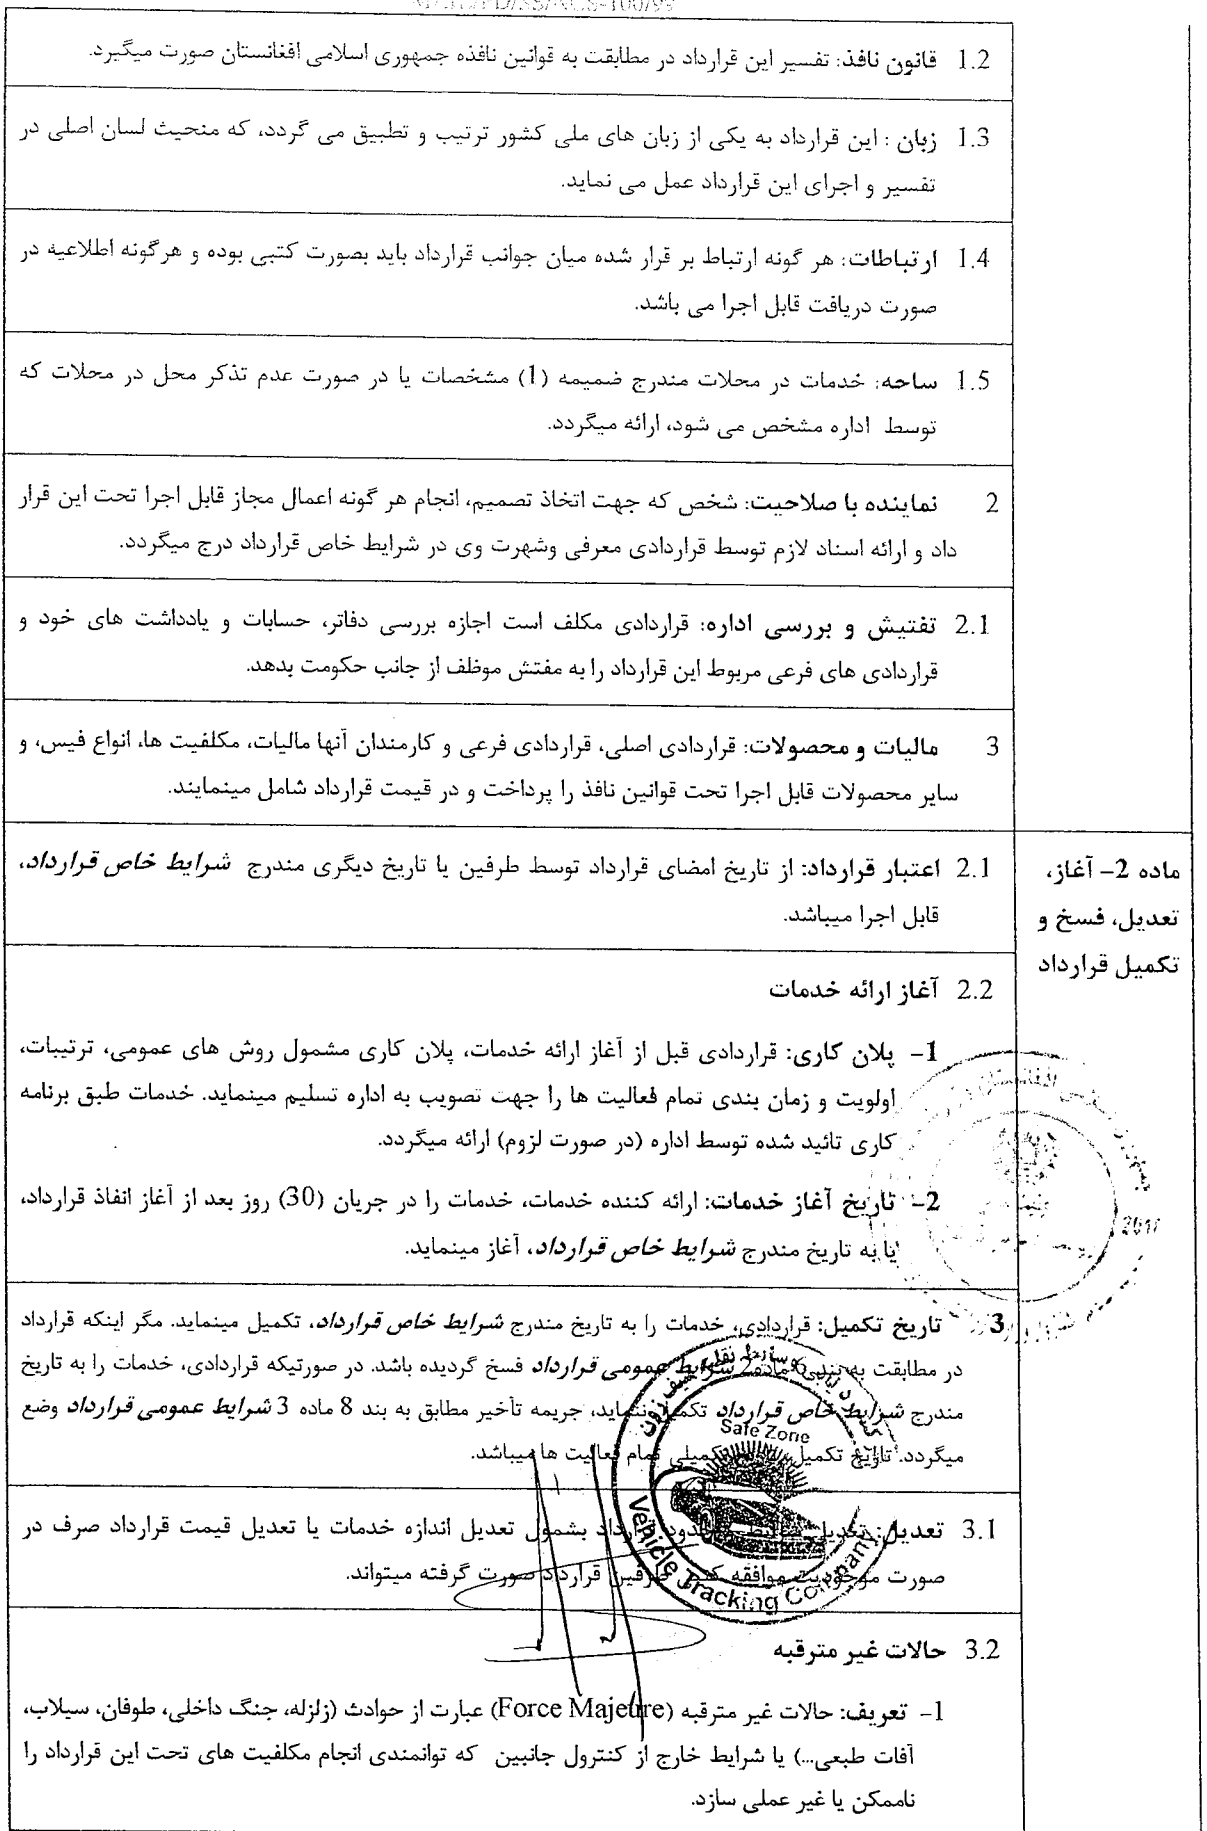 1.2 قانون نافذ: تفسیر این قرارداد در مطابقت به قوانین نافذه جمهوری اسلامی افغانستان صورت میگیرد.
1.3 زبان : این قرارداد به یکی از زبان های ملی کشور ترتیب و تطبیق می گردد، که منحیث لسان اصلی در
تفسیر و اجرای این قرارداد عمل می نماید.
1.4 ارتباطات: هر گونه ارتباط بر قرار شده میان جوانب قرارداد باید بصورت کتبی بوده و هرگونه اطلاعیه در
صورت دریافت قابل اجرا می باشد.
1.5 ساحه: خدمات در محلات مندرج ضمیمه (1) مشخصات یا در صورت عدم تذکر محل در محلات که
توسط اداره مشخص می شود، ارائه میگردد.
2 نماینده با صلاحیت: شخص که جهت اتخاذ تصمیم، انجام هر گونه اعمال مجاز قابل اجرا تحت این قرار
داد و ارائه اسناد لازم توسط قراردادی معرفی وشهرت وی در شرایط خاص قرارداد درج میگردد.
2.1 تفتیش و بررسی اداره: قراردادی مکلف است اجازه بررسی دفاتر، حسابات و یادداشت های خود و
قراردادی های فرعی مربوط این قرارداد را به مفتش موظف از جانب حکومت بدهد.
3 مالیات و محصولات: قراردادی اصلی، قراردادی فرعی و کارمندان آنها مالیات، مکلفیت ها، انواع فیس، و
سایر محصولات قابل اجرا تحت قوانین نافذ را پرداخت و در قیمت قرارداد شامل مینمایند.
ماده 2– آغاز،
تعدیل، فسخ و
تکمیل قرارداد
2.1 اعتبار قرارداد: از تاریخ امضای قرارداد توسط طرفین یا تاریخ دیگری مندرج شرایط خاص قرارداد،
قابل اجرا میباشد.
2.2 آغاز ارائه خدمات
1– پلان کاری: قراردادی قبل از آغاز ارائه خدمات، پلان کاری مشمول روش های عمومی، ترتیبات،
اولویت و زمان بندی تمام فعالیت ها را جهت تصویب به اداره تسلیم مینماید. خدمات طبق برنامه
کاری تائید شده توسط اداره (در صورت لزوم) ارائه میگردد.
2– تاریخ آغاز خدمات: ارائه کننده خدمات، خدمات را در جریان (30) روز بعد از آغاز انفاذ قرارداد،
یا به تاریخ مندرج شرایط خاص قرارداد، آغاز مینماید.
3 تاریخ تکمیل: قراردادی، خدمات را به تاریخ مندرج شرایط خاص قرارداد، تکمیل مینماید. مگر اینکه قرارداد
در مطابقت به بند 6 ماده 2 شرایط عمومی قرارداد فسخ گردیده باشد. در صورتیکه قراردادی، خدمات را به تاریخ
مندرج شرایط خاص قرارداد تکمیل ننماید، جریمه تأخیر مطابق به بند 8 ماده 3 شرایط عمومی قرارداد وضع
میگردد. تاریخ تکمیل تکمیلی تمام فعالیت ها میباشد.
Safe Zone
Vehicle Tracking Company
3.1 تعدیل: تعدیل قرارداد بشمول تعدیل اندازه خدمات یا تعدیل قیمت قرارداد صرف در
صورت موجودیت موافقه کتبی طرفین قرارداد صورت گرفته میتواند.
3.2 حالات غیر مترقبه
1– تعریف: حالات غیر مترقبه (Force Majeure) عبارت از حوادث (زلزله، جنگ داخلی، طوفان، سیلاب،
آفات طبعی...) یا شرایط خارج از کنترول جانبین که توانمندی انجام مکلفیت های تحت این قرارداد را
ناممکن یا غیر عملی سازد.